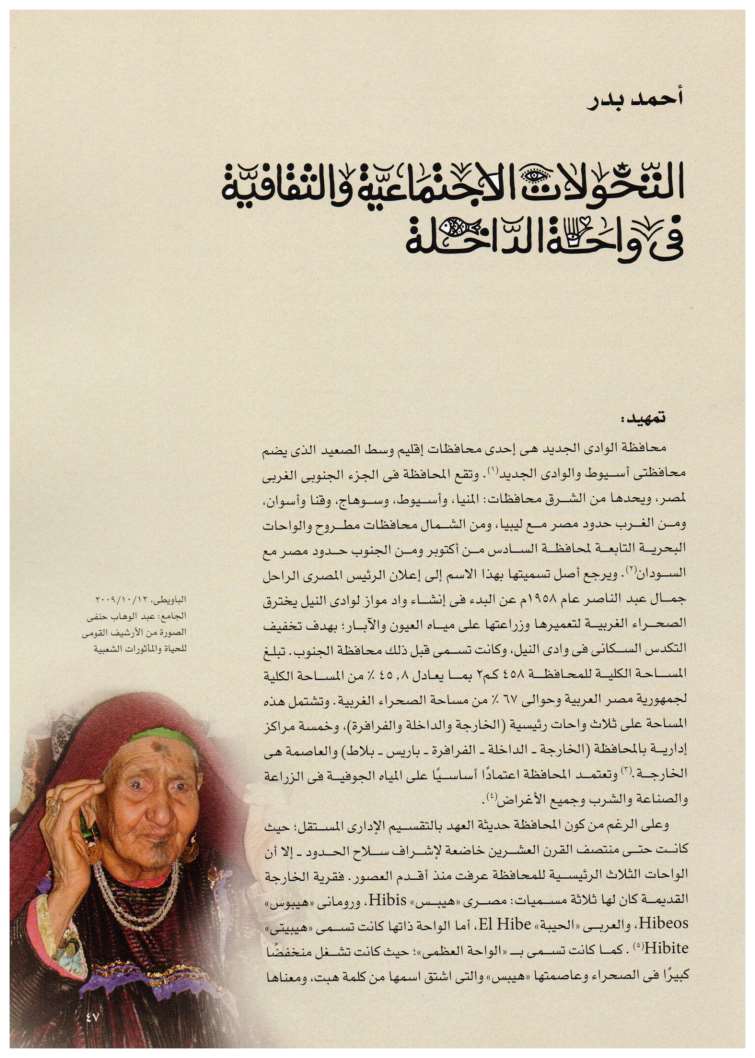 أحمد بدر
التحولات الاجتماعية والثقافية
فى واحة الداخلة
تمهيد:
محافظة الوادى الجديد هى إحدى محافظات إقليم وسط الصعيد الذى يضم
محافظتى أسيوط والوادى الجديد(١). وتقع المحافظة فى الجزء الجنوبى الغربى
لمصر، ويحدها من الشرق محافظات: المنيا، وأسيوط، وسوهاج، وقنا وأسوان،
ومن الغرب حدود مصر مع ليبيا، ومن الشمال محافظات مطروح والواحات
البحرية التابعة لمحافظة السادس من أكتوبر ومن الجنوب حدود مصر مع
السودان(٢). ويرجع أصل تسميتها بهذا الاسم إلى إعلان الرئيس المصرى الراحل
جمال عبد الناصر عام ١٩٥٨م عن البدء فى إنشاء واد مواز لوادى النيل يخترق
الصحراء الغربية لتعميرها وزراعتها على مياه العيون والآبار؛ بهدف تخفيف
التكدس السكانى فى وادى النيل، وكانت تسمى قبل ذلك محافظة الجنوب. تبلغ
المساحة الكلية للمحافظة ٤٥٨ كم٢ بما يعادل ٤٥,٨ ٪ من المساحة الكلية
لجمهورية مصر العربية وحوالى ٦٧ ٪ من مساحة الصحراء الغربية. وتشتمل هذه
المساحة على ثلاث واحات رئيسية (الخارجة والداخلة والفرافرة)، وخمسة مراكز
إدارية بالمحافظة (الخارجة ـ الداخلة ـ الفرافرة ـ باريس ـ بلاط) والعاصمة هى
الخارجة.(٣) وتعتمد المحافظة اعتمادًا أساسيًا على المياه الجوفية فى الزراعة
والصناعة والشرب وجميع الأغراض(٤).
وعلى الرغم من كون المحافظة حديثة العهد بالتقسيم الإدارى المستقل؛ حيث
كانت حتى منتصف القرن العشرين خاضعة لإشراف سلاح الحدود ـ إلا أن
الواحات الثلاث الرئيسية للمحافظة عرفت منذ أقدم العصور. فقرية الخارجة
القديمة كان لها ثلاثة مسميات: مصرى «هيبس» Hibis، ورومانى «هيبوس»
Hibeos، والعربى «الحيبة» El Hibe، أما الواحة ذاتها كانت تسمى «هيبيتى»
Hibite(٥) . كما كانت تسمى بـ «الواحة العظمى»؛ حيث كانت تشغل منخفضًا
كبيرًا فى الصحراء وعاصمتها «هيبس» والتى اشتق اسمها من كلمة هبت، ومعناها
الباويطى، ٢٠٠٩/١٠/١٢
الجامع: عبد الوهاب حنفى
الصورة من الأرشيف القومى
للحياة والمأثورات الشعبية
٤٧